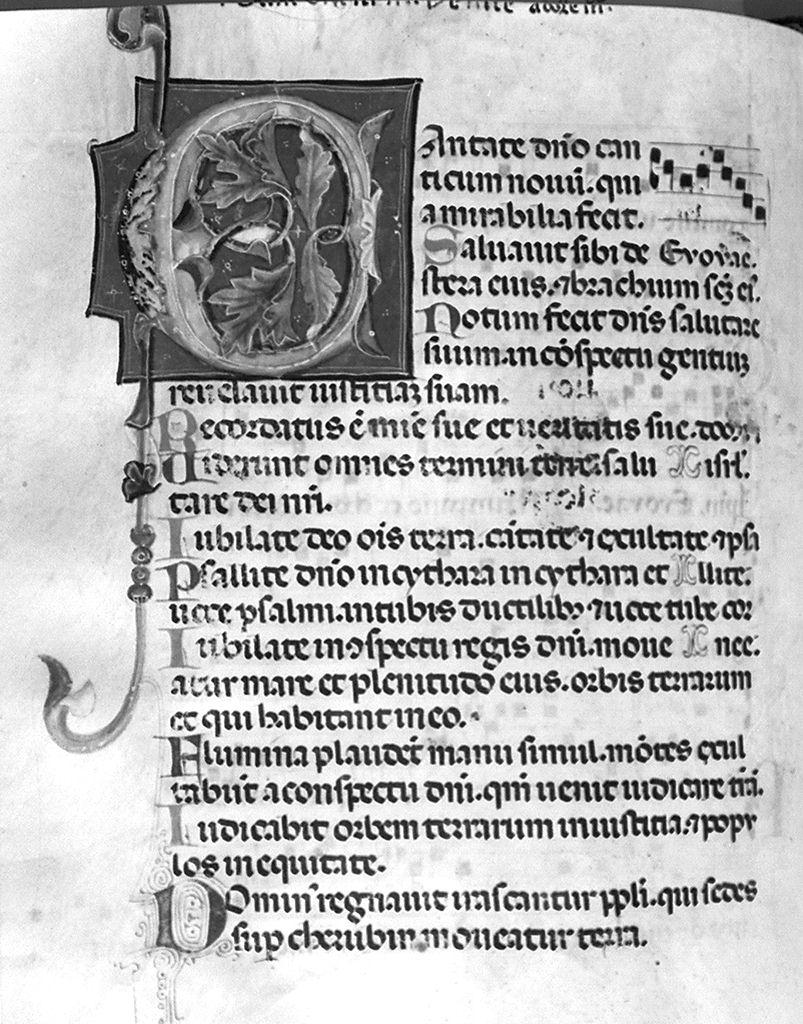 CAntate dño can
ticum nouũ. qui
a mirabilia fecit.
Saluauit sibi de Evovae.
xtera eius. ⁊ brachium scz ei⁹.
Notum fecit dñs salutare
suum. in cõspectu gentiuz
reuelauit iustitiaz suam.
Recordatus ẽ mie sue et ueritatis sue. domui
Uiderunt omnes termini terre. salu isrl'.
tare dei nri.
Iubilate deo ois terra. cãtate ⁊ exultate ⁊ psa
Psallite dño in cythara in cythara et llite.
uoce psalmi. in tubis ductilib⁊ ⁊ uoce tube cor
Iubilate in ꝯspectu regis dñi. moue nee.
atur mare et plenitudo eius. orbis terrarum
et qui habitant in eo.
Flumina plaudẽt manu simul. mõtes exul
tabũt a conspectu dñi. qm̃ uenit iudicare trã.
Iudicabit orbem terrarum in iustitia. ⁊ popu
los in equitate.
Domin⁹ regnauit irascantur ppli. qui sedes
sup cherubin. moueatur terra.